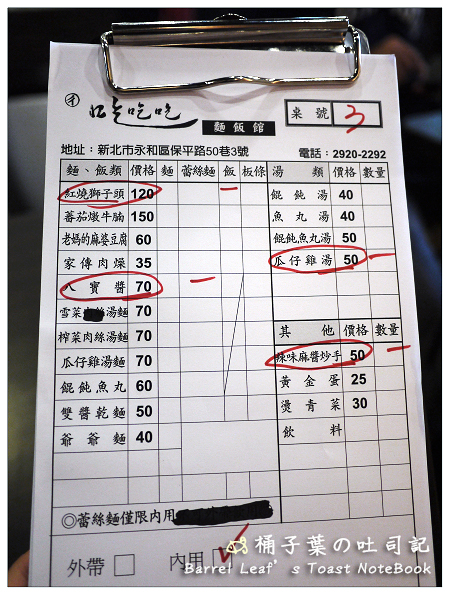 吃吃吃
麵飯館
桌號 3
地址：新北市永和區保平路50巷3號 電話：2920-2292
麵、飯類 價格 麵 蕾絲麵 飯 板條 湯類 價格 數量
紅燒獅子頭 120 一 餛飩湯 40
蕃茄燉牛腩 150 魚丸湯 40
老媽的麻婆豆腐 60 餛飩魚丸湯 50
家傳肉燥 35 瓜仔雞湯 50 一
八寶醬 70 一
雪菜 湯麵 70 其他 價格 數量
榨菜肉絲湯麵 70 辣味麻醬炒手 50 一
瓜仔雞湯麵 70 黃金蛋 25
餛飩魚丸 60 燙青菜 30
雙醬乾麵 50 飲料
爺爺麵 40
◎蕾絲麵僅限內用
外帶 □ 內用 □
桶子葉の吐司記
Barrel Leaf's Toast NoteBook